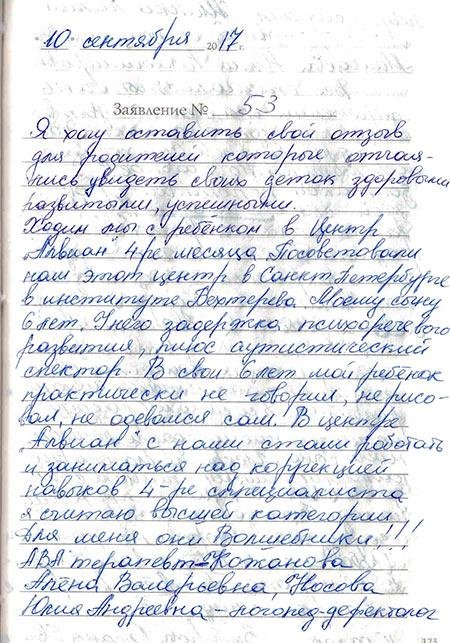 "10" сентября 2017 г.
Заявление № 53
Я хочу оставить свой отзыв
для родителей которые отчая-
лись увидеть своих деток здоровыми
развитыми, успешными.
Ходим мы с ребёнком в Центр
„Алвиан" 4-ре месяца. Посоветовали
нам этот центр в Санкт Петербурге
в институте Бехтерева. Моему сыну
6 лет. У него задержка психоречевого
развития, плюс аутистический
спектор. В свои 6 лет мой ребёнок
практически не говорил, не рисо-
вал, не одевался сам. В центре
„Алвиан" с нами стали работать
и заниматься над коррекцией
навыков 4-ре специалиста
я считаю высшей категории.
Для меня они Волшебники!!!
АВА терапевт - Кожанова
Алёна Валерьевна, Носова
Юлия Андреевна - логопед-дефектолог
123